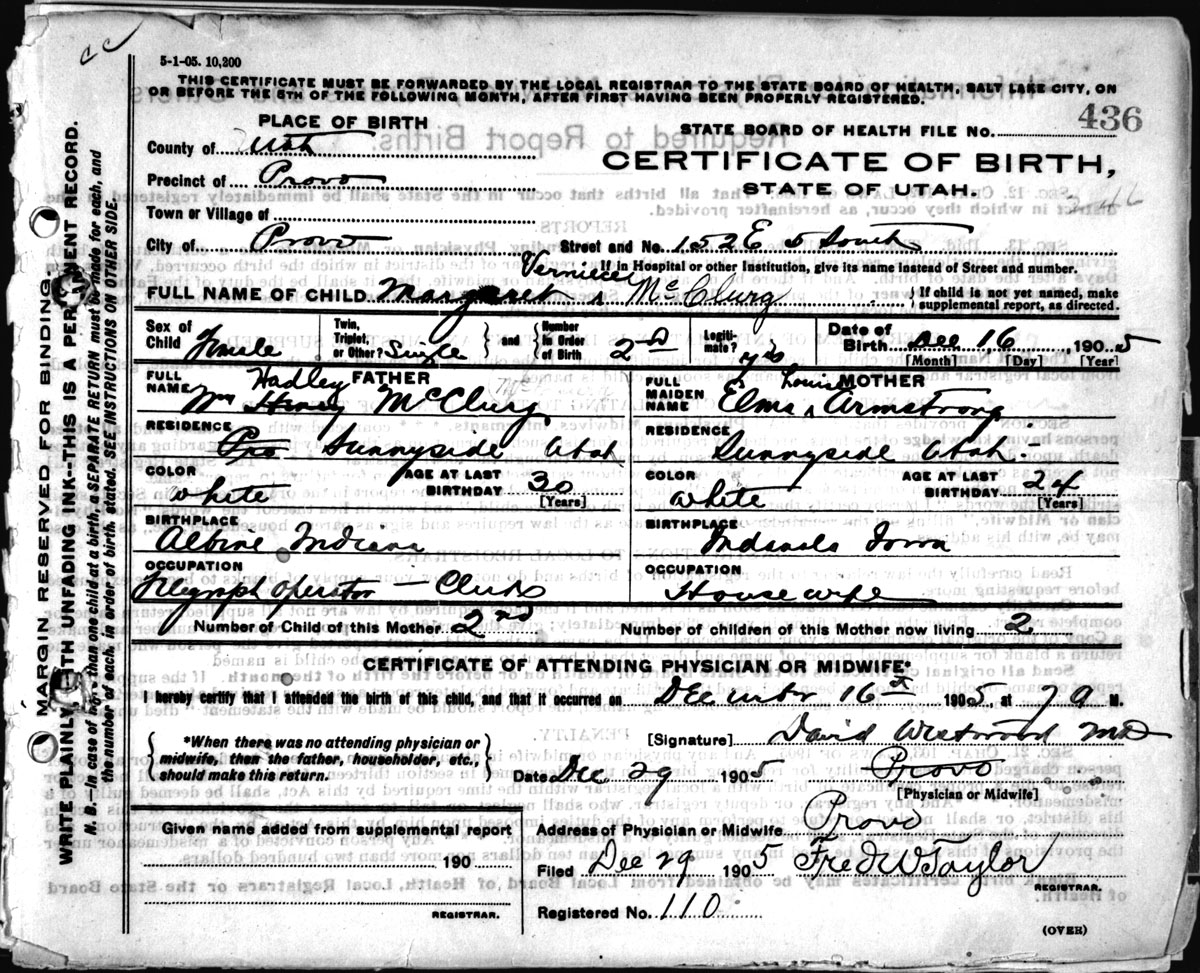 5-1-05. 10,200
THIS CERTIFICATE MUST BE FORWARDED BY THE LOCAL REGISTRAR TO THE STATE BOARD OF HEALTH, SALT LAKE CITY, ON
OR BEFORE THE 5TH OF THE FOLLOWING MONTH, AFTER FIRST HAVING BEEN PROPERLY REGISTERED.
PLACE OF BIRTH
STATE BOARD OF HEALTH FILE NO. 436
County of Utah
CERTIFICATE OF BIRTH,
Precinct of Provo
STATE OF UTAH.
Town or Village of
City of Provo
Street and No. 152 E 5 South
If in Hospital or other Institution, give its name instead of Street and number.
Verniece
FULL NAME OF CHILD Margaret McClurg
{If child is not yet named, make
supplemental report, as directed.
Sex of Child Female
Twin, Triplet, or Other? Single
and
Number in Order of Birth 2nd
Legitimate? yes
Date of Birth Dec 16, 1905
[Month] [Day] [Year]
FATHER
FULL NAME Wm Hadley Henry McClurg
RESIDENCE Pro Sunnyside Utah
COLOR white
AGE AT LAST BIRTHDAY 30
[Years]
BIRTHPLACE
Indiana
OCCUPATION
Telegraph operator — Clerk
MOTHER
FULL MAIDEN NAME Elma Louise Armstrong
RESIDENCE
Sunnyside Utah.
COLOR white
AGE AT LAST BIRTHDAY 24
[Years]
BIRTHPLACE
Iowa
OCCUPATION
Housewife
Number of Child of this Mother 2nd
Number of children of this Mother now living 2
CERTIFICATE OF ATTENDING PHYSICIAN OR MIDWIFE*
I hereby certify that I attended the birth of this child, and that it occurred on December 16 1905, at 7 a M.
{*When there was no attending physician or
midwife, then the father, householder, etc.,
should make this return.}
[Signature] David Westwood MD
Date Dec 29 1905
Provo
[Physician or Midwife]
Given name added from supplemental report
190
REGISTRAR.
Address of Physician or Midwife Provo
Filed Dec 29 1905 Fred W Taylor
REGISTRAR.
Registered No. 110
(OVER)
MARGIN RESERVED FOR BINDING.
WRITE PLAINLY WITH UNFADING INK--THIS IS A PERMANENT RECORD.
N. B.—In case of more than one child at a birth, a SEPARATE RETURN must be made for each, and
the number of each, in order of birth, stated. SEE INSTRUCTIONS ON OTHER SIDE.